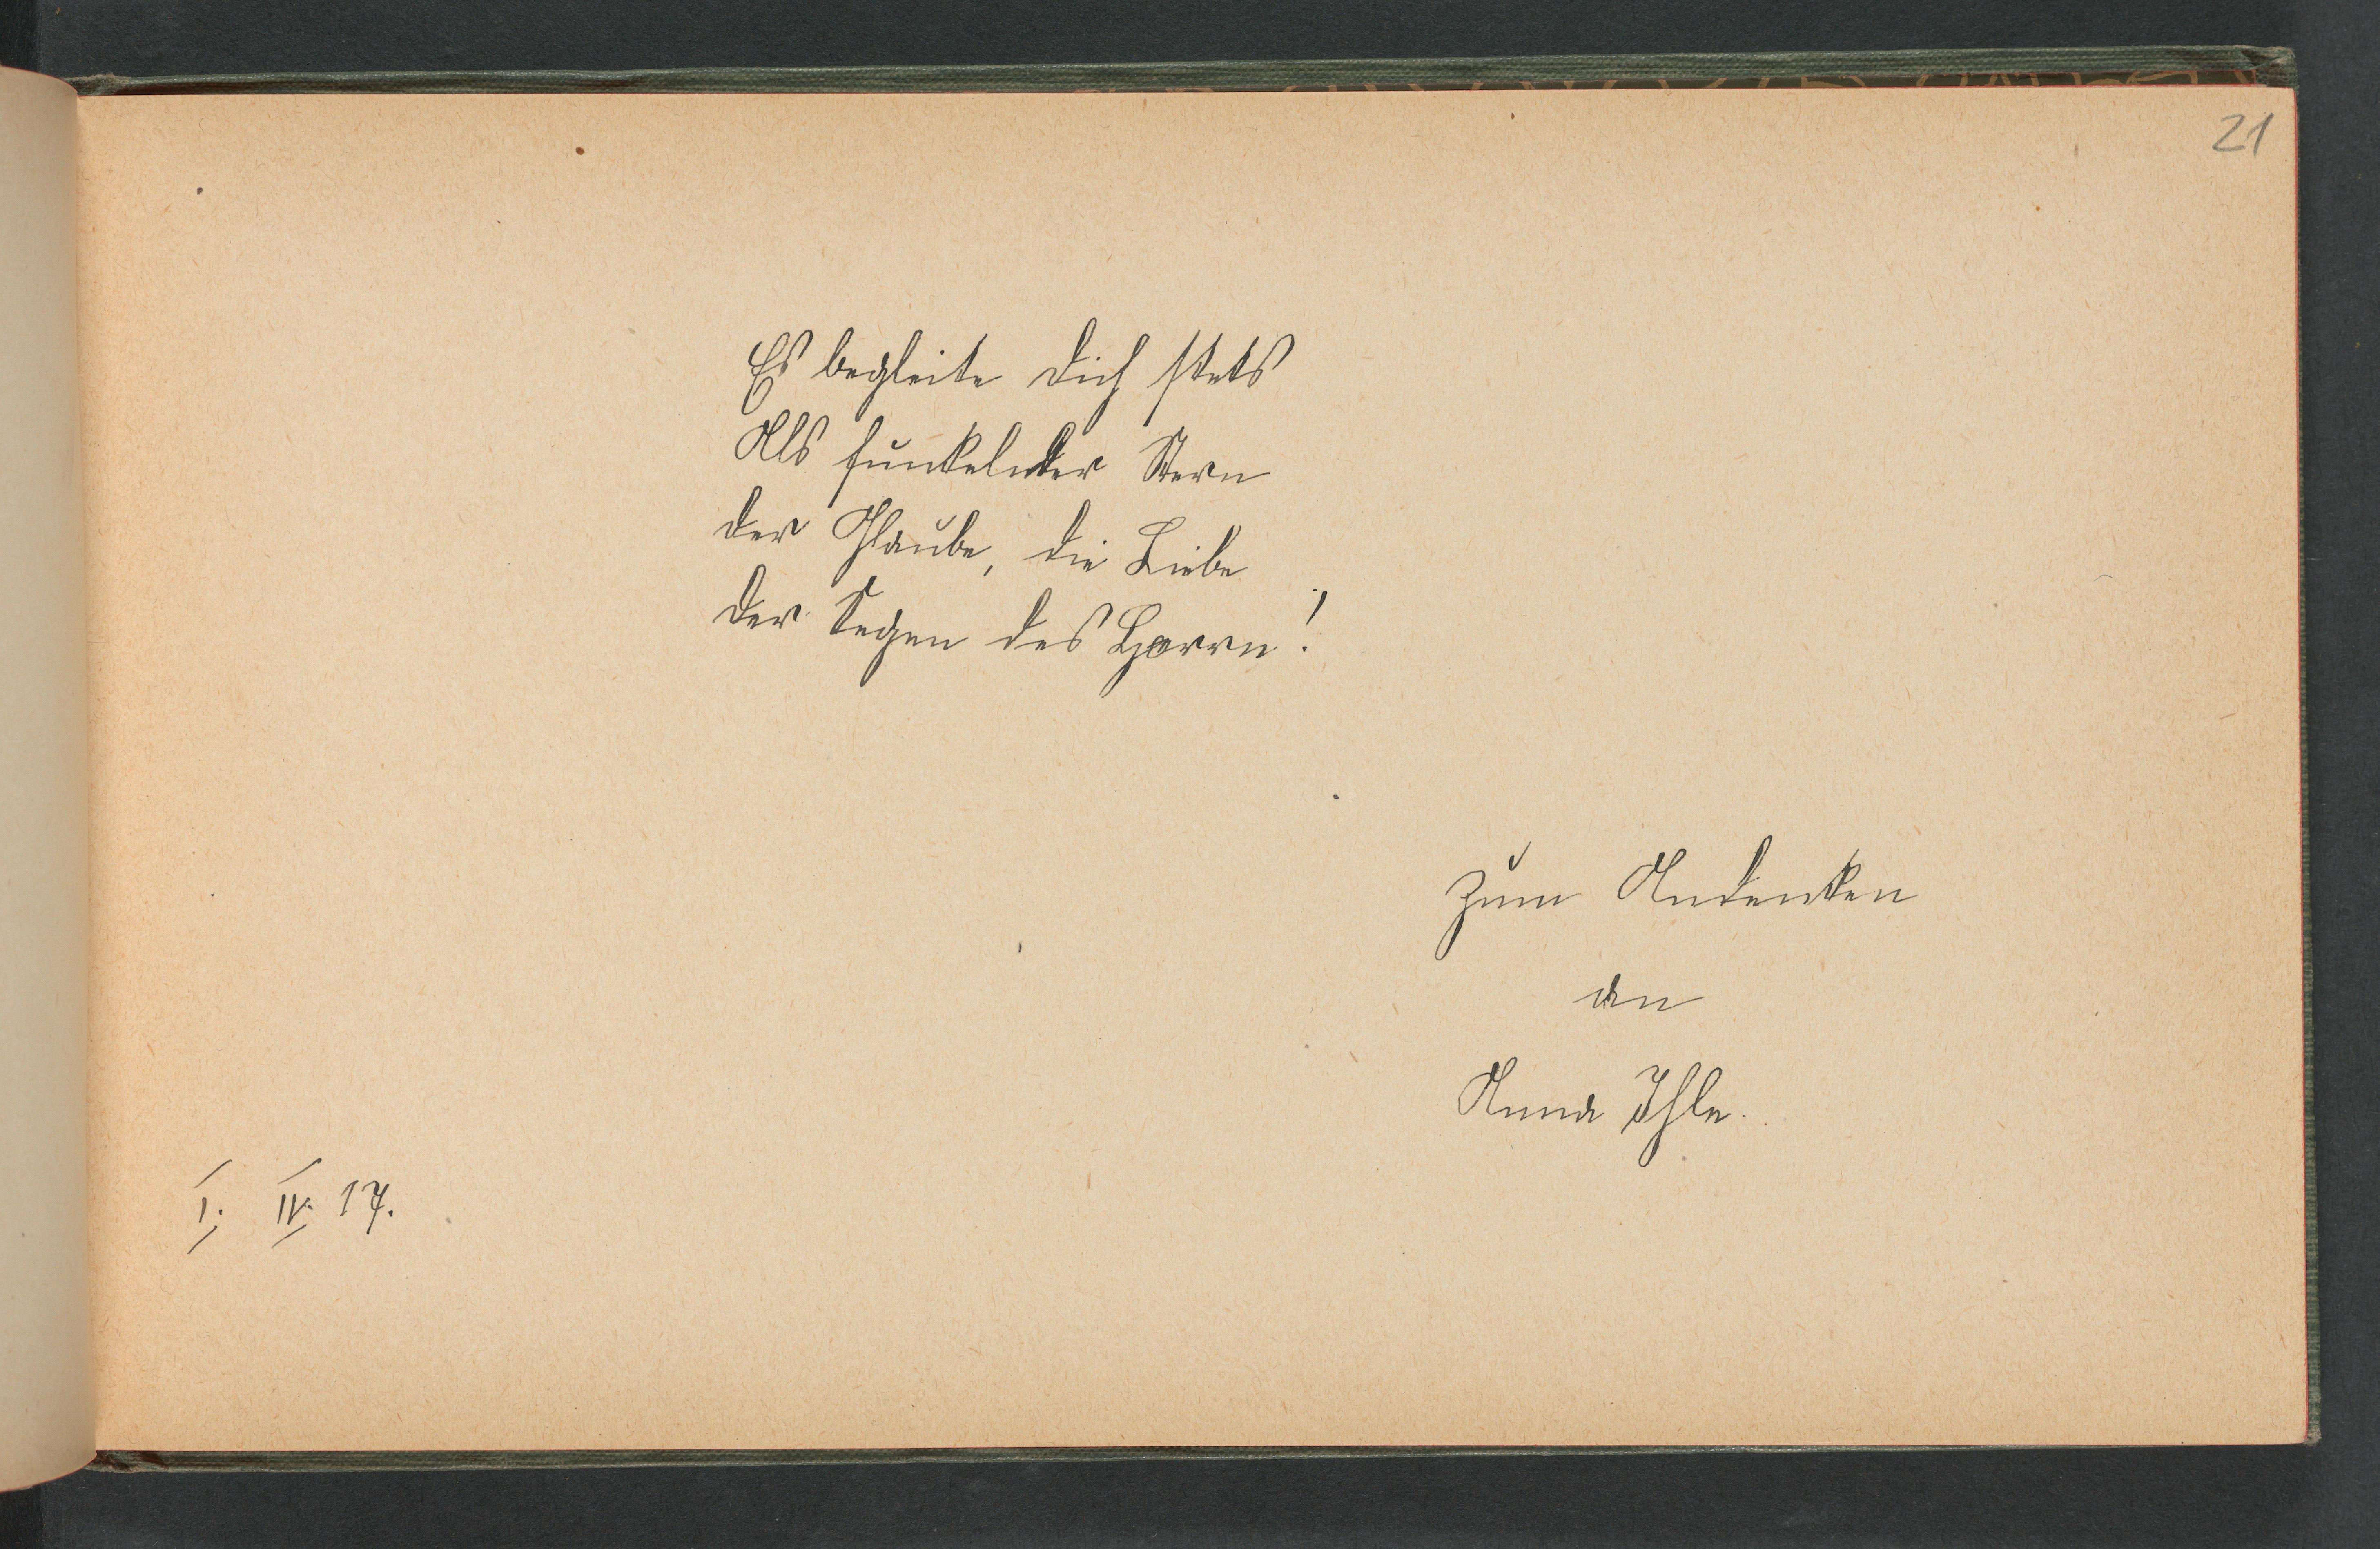 21
Es begleite dich stets
Als funkelnder Stern
der Glaube, die Liebe
der Segen des Herrn!
Zum Andenken
an
Anna Ihle.
1. IV. 17.